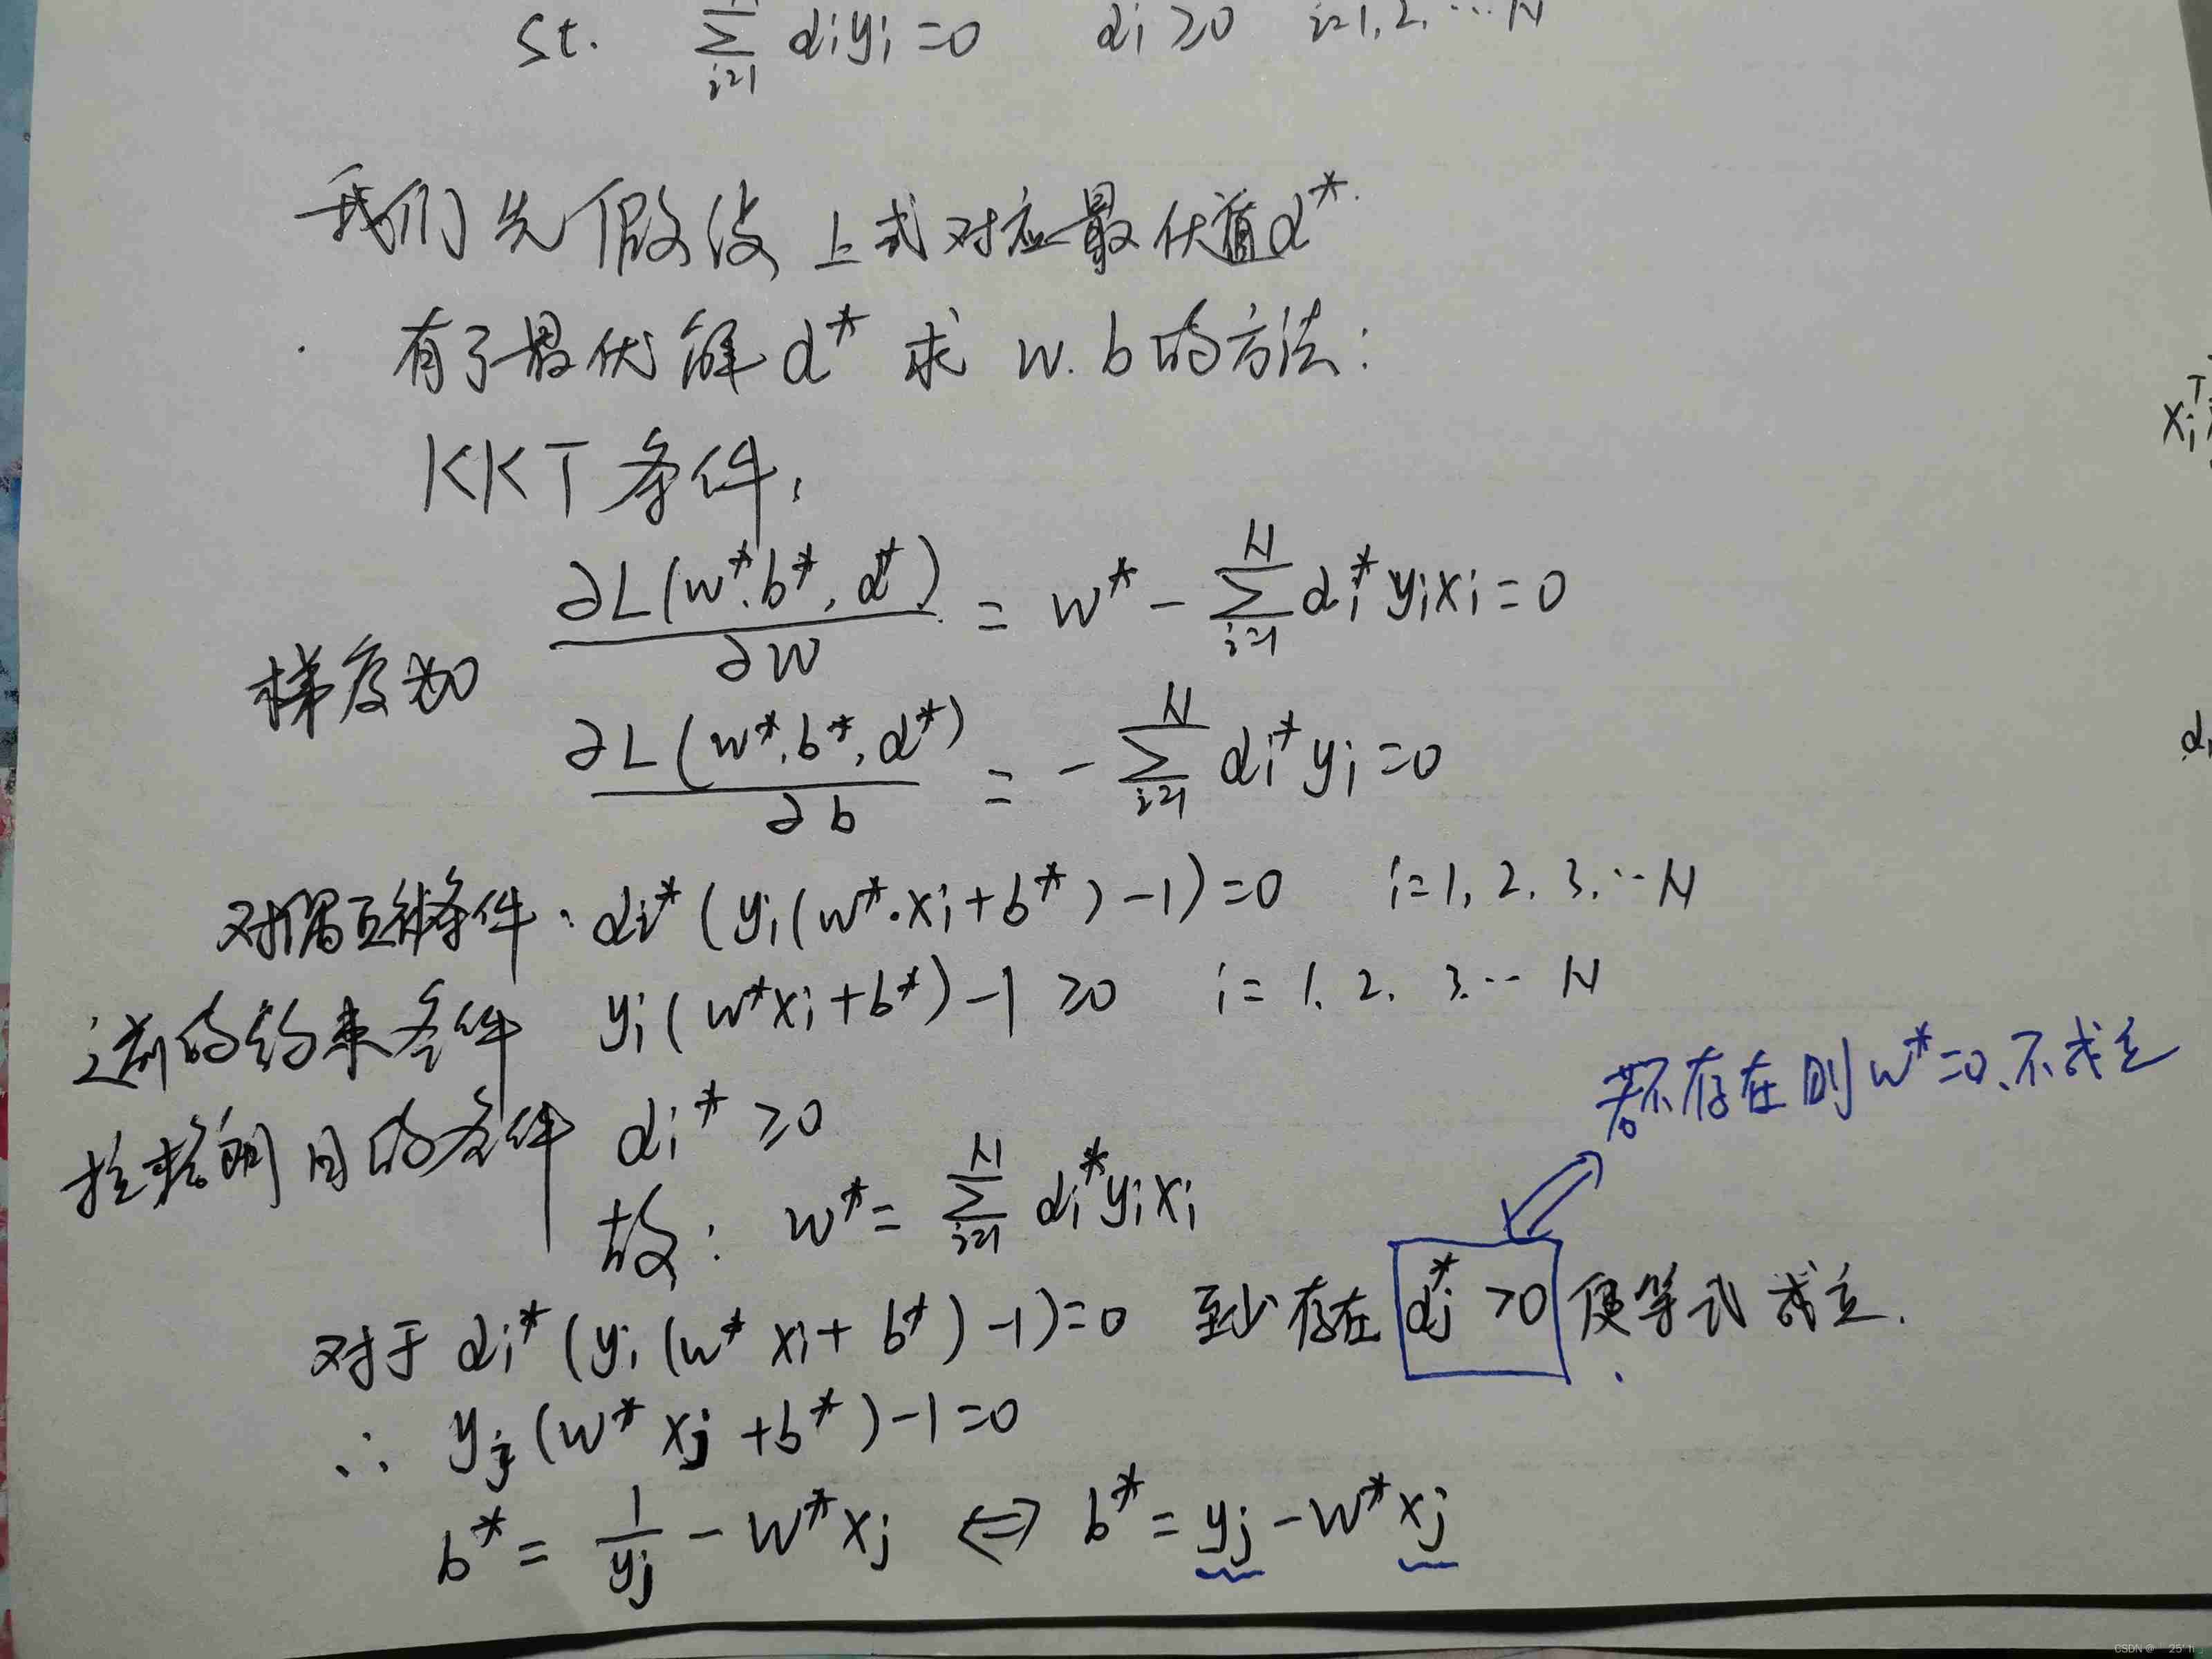 St. ∑_{i=1} αiyi=0 αi≥0 i=1,2,…N
我们先假设上式对应最优值α*.
有了最优解α* 求 w.b的方法:
KKT条件,
∂L(w*.b*,α*)/∂w = w* - ∑_{i=1}^{N} αi* yixi=0
梯度为0
∂L(w*.b*,α*)/∂b = - ∑_{i=1}^{N} αi* yi=0
对偶互补条件: αi*(yi(w*·xi+b*)-1)=0 i=1,2,3,…N
之前的约束条件 yi(w*xi+b*)-1≥0 i=1.2.3.…N
拉格朗日的条件 αi*≥0
若不存在则w*=0,不成立
故: w*= ∑_{i=1}^{N} αi*yixi
对于 αi*(yi(w*xi+b*)-1)=0 至少存在 αj*>0 使等式成立.
∴ yj(w*xj+b*)-1=0
b*= 1/yj - w*xj ⇔ b*=yj-w*xj
xi^T
CSDN @